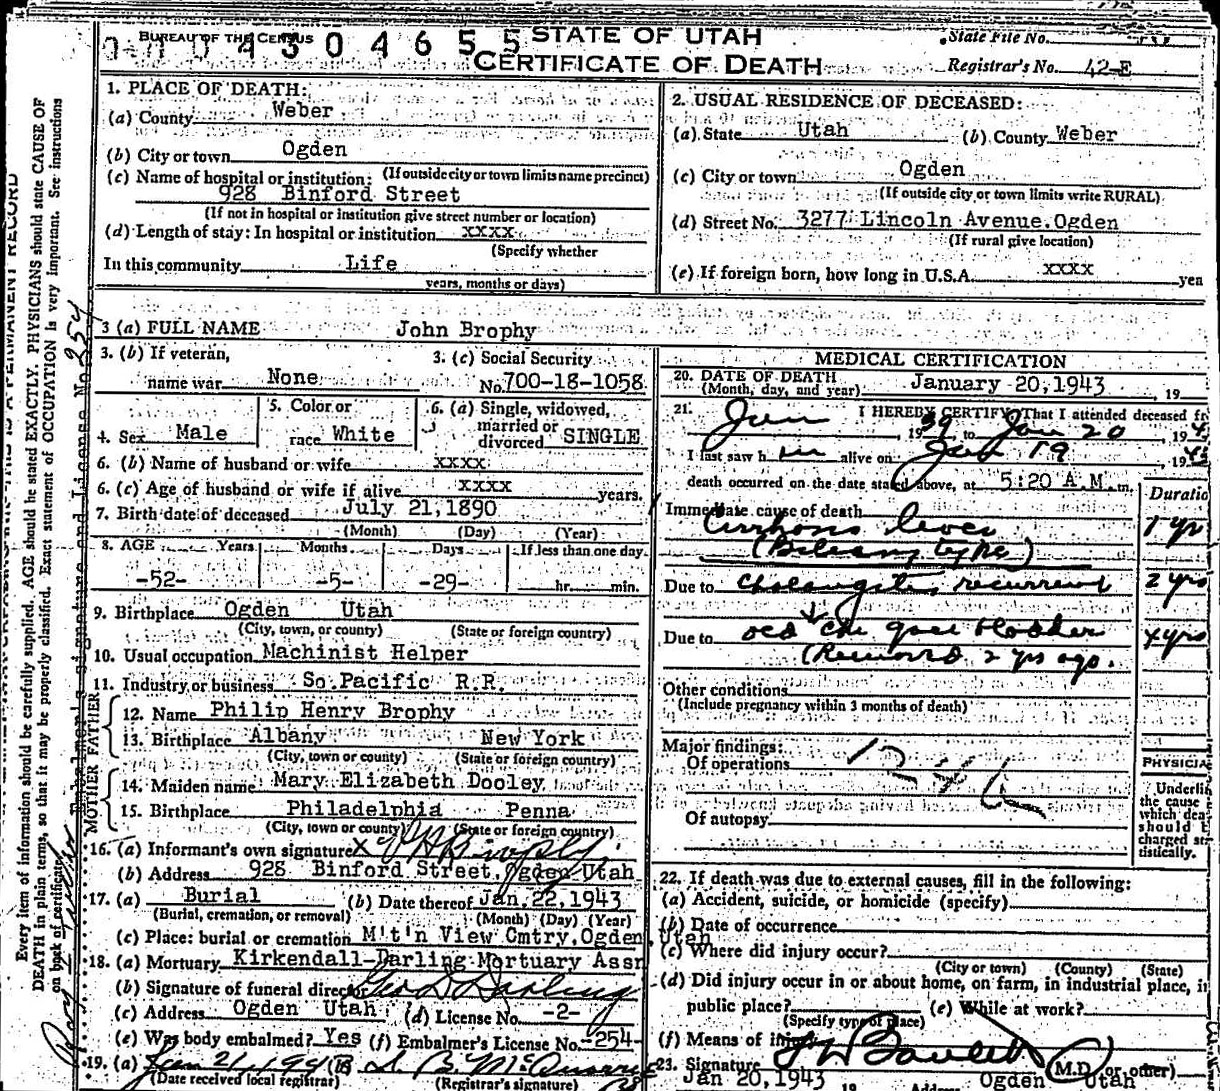 BUREAU OF THE CENSUS
0430465 5
STATE OF UTAH
CERTIFICATE OF DEATH
State File No.
Registrar's No. 42-E
1. PLACE OF DEATH:
(a) County Weber
(b) City or town Ogden
(If outside city or town limits name precinct)
(c) Name of hospital or institution:
928 Binford Street
(If not in hospital or institution give street number or location)
(d) Length of stay: In hospital or institution xxxx
(Specify whether
In this community Life
years, months or days)
2. USUAL RESIDENCE OF DECEASED:
(a) State Utah (b) County Weber
(c) City or town Ogden
(If outside city or town limits write RURAL)
(d) Street No. 3277 Lincoln Avenue. Ogden
(If rural give location)
(e) If foreign born, how long in U.S.A. xxxx yea
3 (a) FULL NAME John Brophy
3. (b) If veteran,
name war None
3. (c) Social Security
No. 700-18-1058
4. Sex Male
5. Color or
race White
6. (a) Single, widowed,
married or
divorced SINGLE
6. (b) Name of husband or wife xxxx
6. (c) Age of husband or wife if alive xxxx years.
7. Birth date of deceased July 21, 1890
(Month) (Day) (Year)
8. AGE Years Months Days If less than one day
-52- -5- -29- hr. min.
9. Birthplace Ogden Utah
(City, town, or county) (State or foreign country)
10. Usual occupation Machinist Helper
11. Industry or business So. Pacific R.R.
FATHER
12. Name Philip Henry Brophy
13. Birthplace Albany New York
(City, town, or county) (State or foreign country)
MOTHER
14. Maiden name Mary Elizabeth Dooley
15. Birthplace Philadelphia Penna
(City, town or county) (State or foreign country)
16. (a) Informant's own signature X Brophy
(b) Address 928 Binford Street, Ogden Utah
17. (a) Burial (b) Date thereof Jan. 22, 1943
(Burial, cremation, or removal) (Month) (Day) (Year)
(c) Place: burial or cremation M't'n View Cmtry. Ogden, Utah
18. (a) Mortuary Kirkendall-Darling Mortuary Assn
(b) Signature of funeral director Geo D Darling
(c) Address Ogden Utah (d) License No. -2-
(e) Was body embalmed? Yes (f) Embalmer's License No. -254-
19. (a) Jan 21, 194 (B)
(Date received local registrar) (Registrar's signature)
MEDICAL CERTIFICATION
20. DATE OF DEATH
(Month, day, and year) January 20, 1943, 19
21. I HEREBY CERTIFY, That I attended deceased fr
Jan, 1939, to Jan 20, 194
I last saw him alive on Jan 19, 1943
death occurred on the date stated above, at 5:20 A.M. m.
Duratio
Immediate cause of death
Cirrhosis liver 1 yr
(Biliary type)
Due to Cholangitis, recurrent 2 yrs
Due to old chr gall bladder 4 yrs
(Removed 2 yrs ago.
Other conditions
(Include pregnancy within 3 months of death)
Major findings:
Of operations
124
Of autopsy
PHYSICIA
Underlin
the cause
which dea
should b
charged sta
tistically.
22. If death was due to external causes, fill in the following:
(a) Accident, suicide, or homicide (specify)
(b) Date of occurrence
(c) Where did injury occur?
(City or town) (County) (State)
(d) Did injury occur in or about home, on farm, in industrial place, in
public place? (e) While at work?
(Specify type of place)
(f) Means of injury
23. Signature (M.D. or other)
Jan 20, 1943 19 Address Ogden Utah
Every item of information should be carefully supplied. AGE should be stated EXACTLY. PHYSICIANS should state CAUSE OF
DEATH in plain terms, so that it may be properly classified. Exact statement of OCCUPATION is very important. See instructions
on back of certificate.